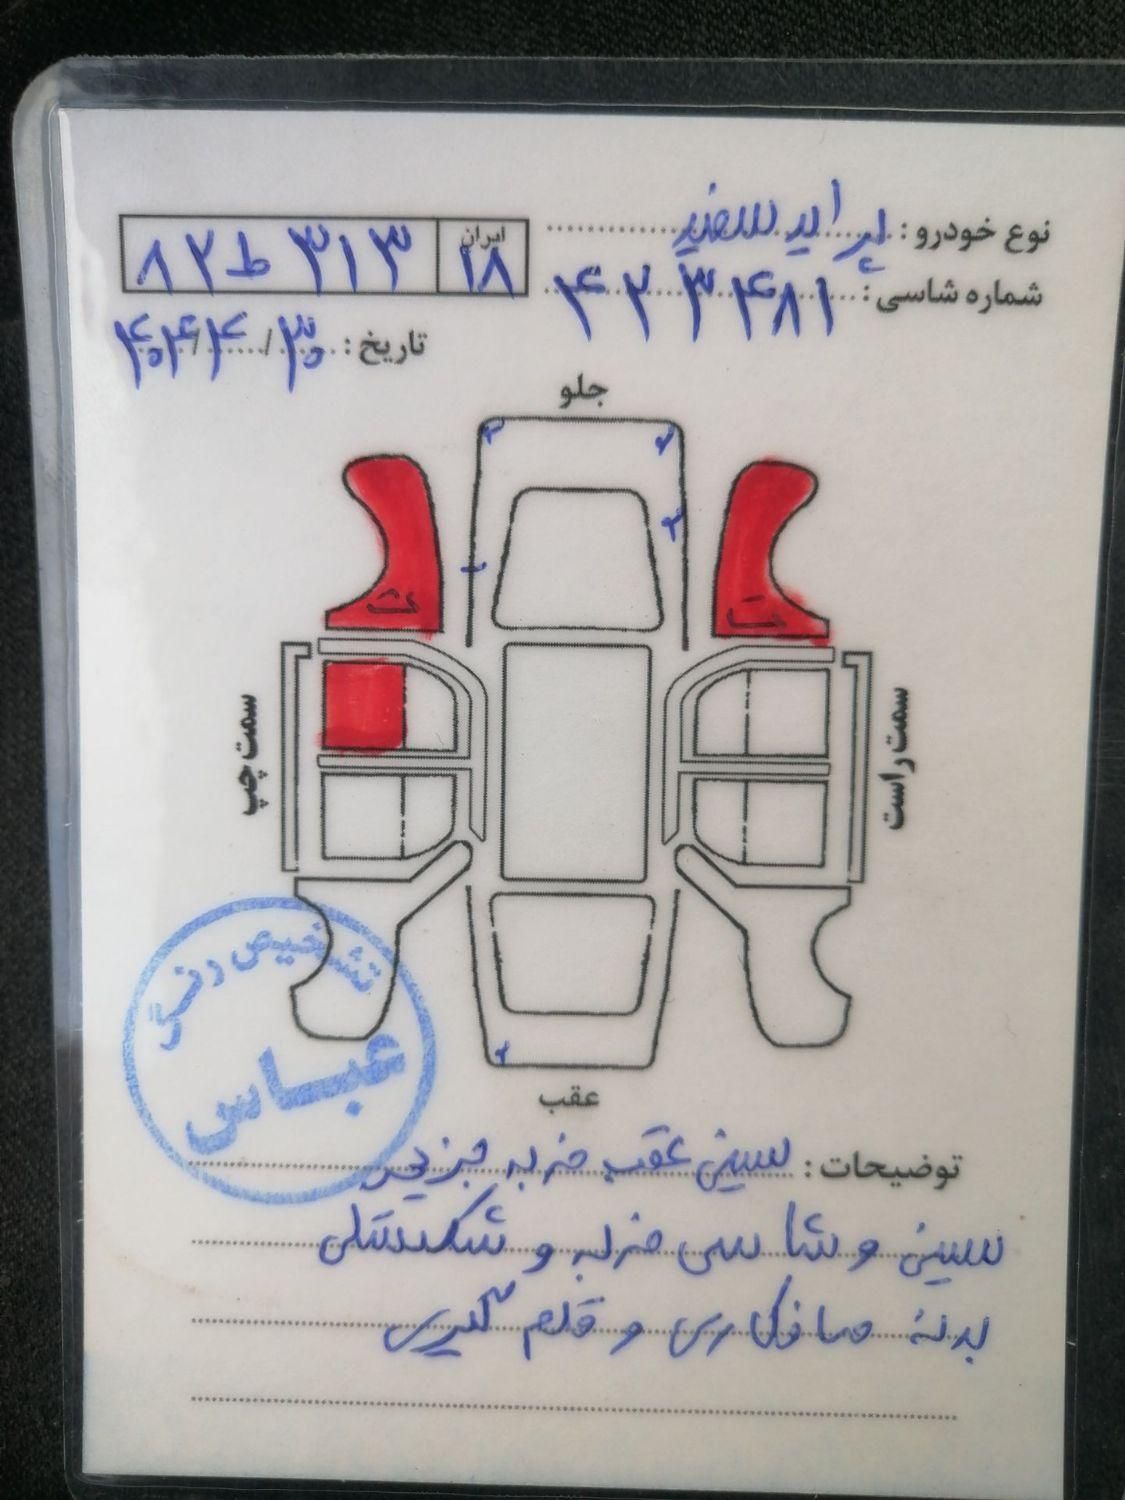 نوع خودرو : پراید سفید
ایران
۱۸ ۳۱۳ ط ۸۲
شماره شاسی : ۴۲۳۴۸۱
تاریخ : ۳۰/۴/۴۰۴
جلو
ت
ت
سمت چپ
سمت راست
تشخیص رنگ
عباس
عقب
توضیحات : سینی عقب ضربه جزیی
سینی و شاسی ضربه و شکستگی
بدنه صافکاری و قلم گیری